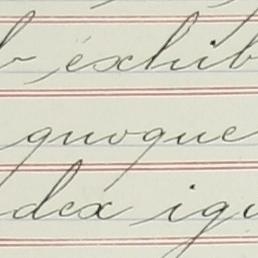 b exhib
quoque
dex igi